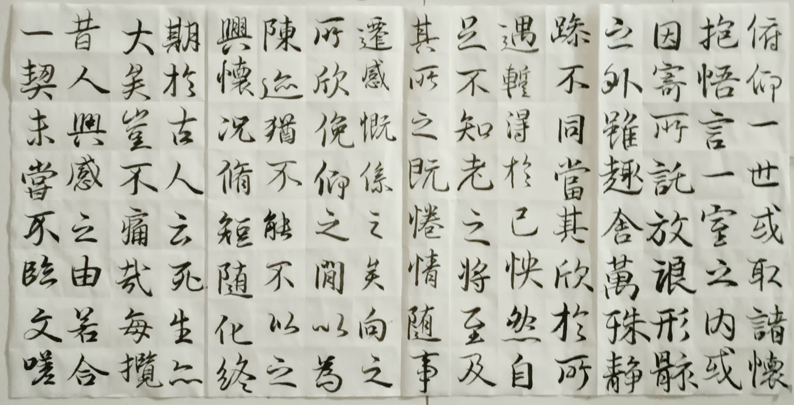 俯仰一世或取諸懷
抱悟言一室之内或
因寄所託放浪形骸
之外雖趣舍萬殊静
躁不同當其欣於所
遇蹔得於己怏然自
足不知老之將至及
其所之既惓情随事
遷感慨係之矣向之
所欣俛仰之閒以為
陳迹猶不能不以之
興懷況脩短随化終
期於古人云死生亦
大矣豈不痛哉每攬
昔人興感之由若合
一契未嘗不臨文嗟